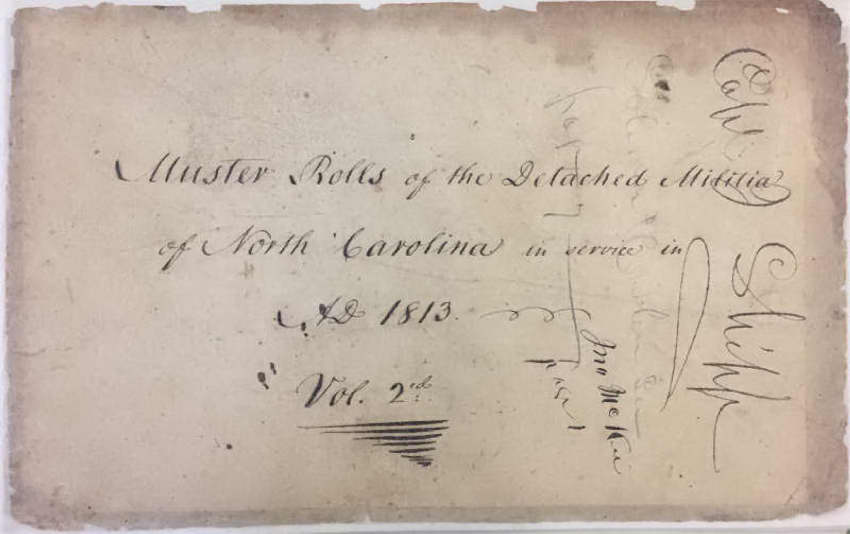 Muster Rolls of the Detached Militia
of North Carolina in service in
AD 1813.
Vol. 2d
Capt Shipp
Jno McKee